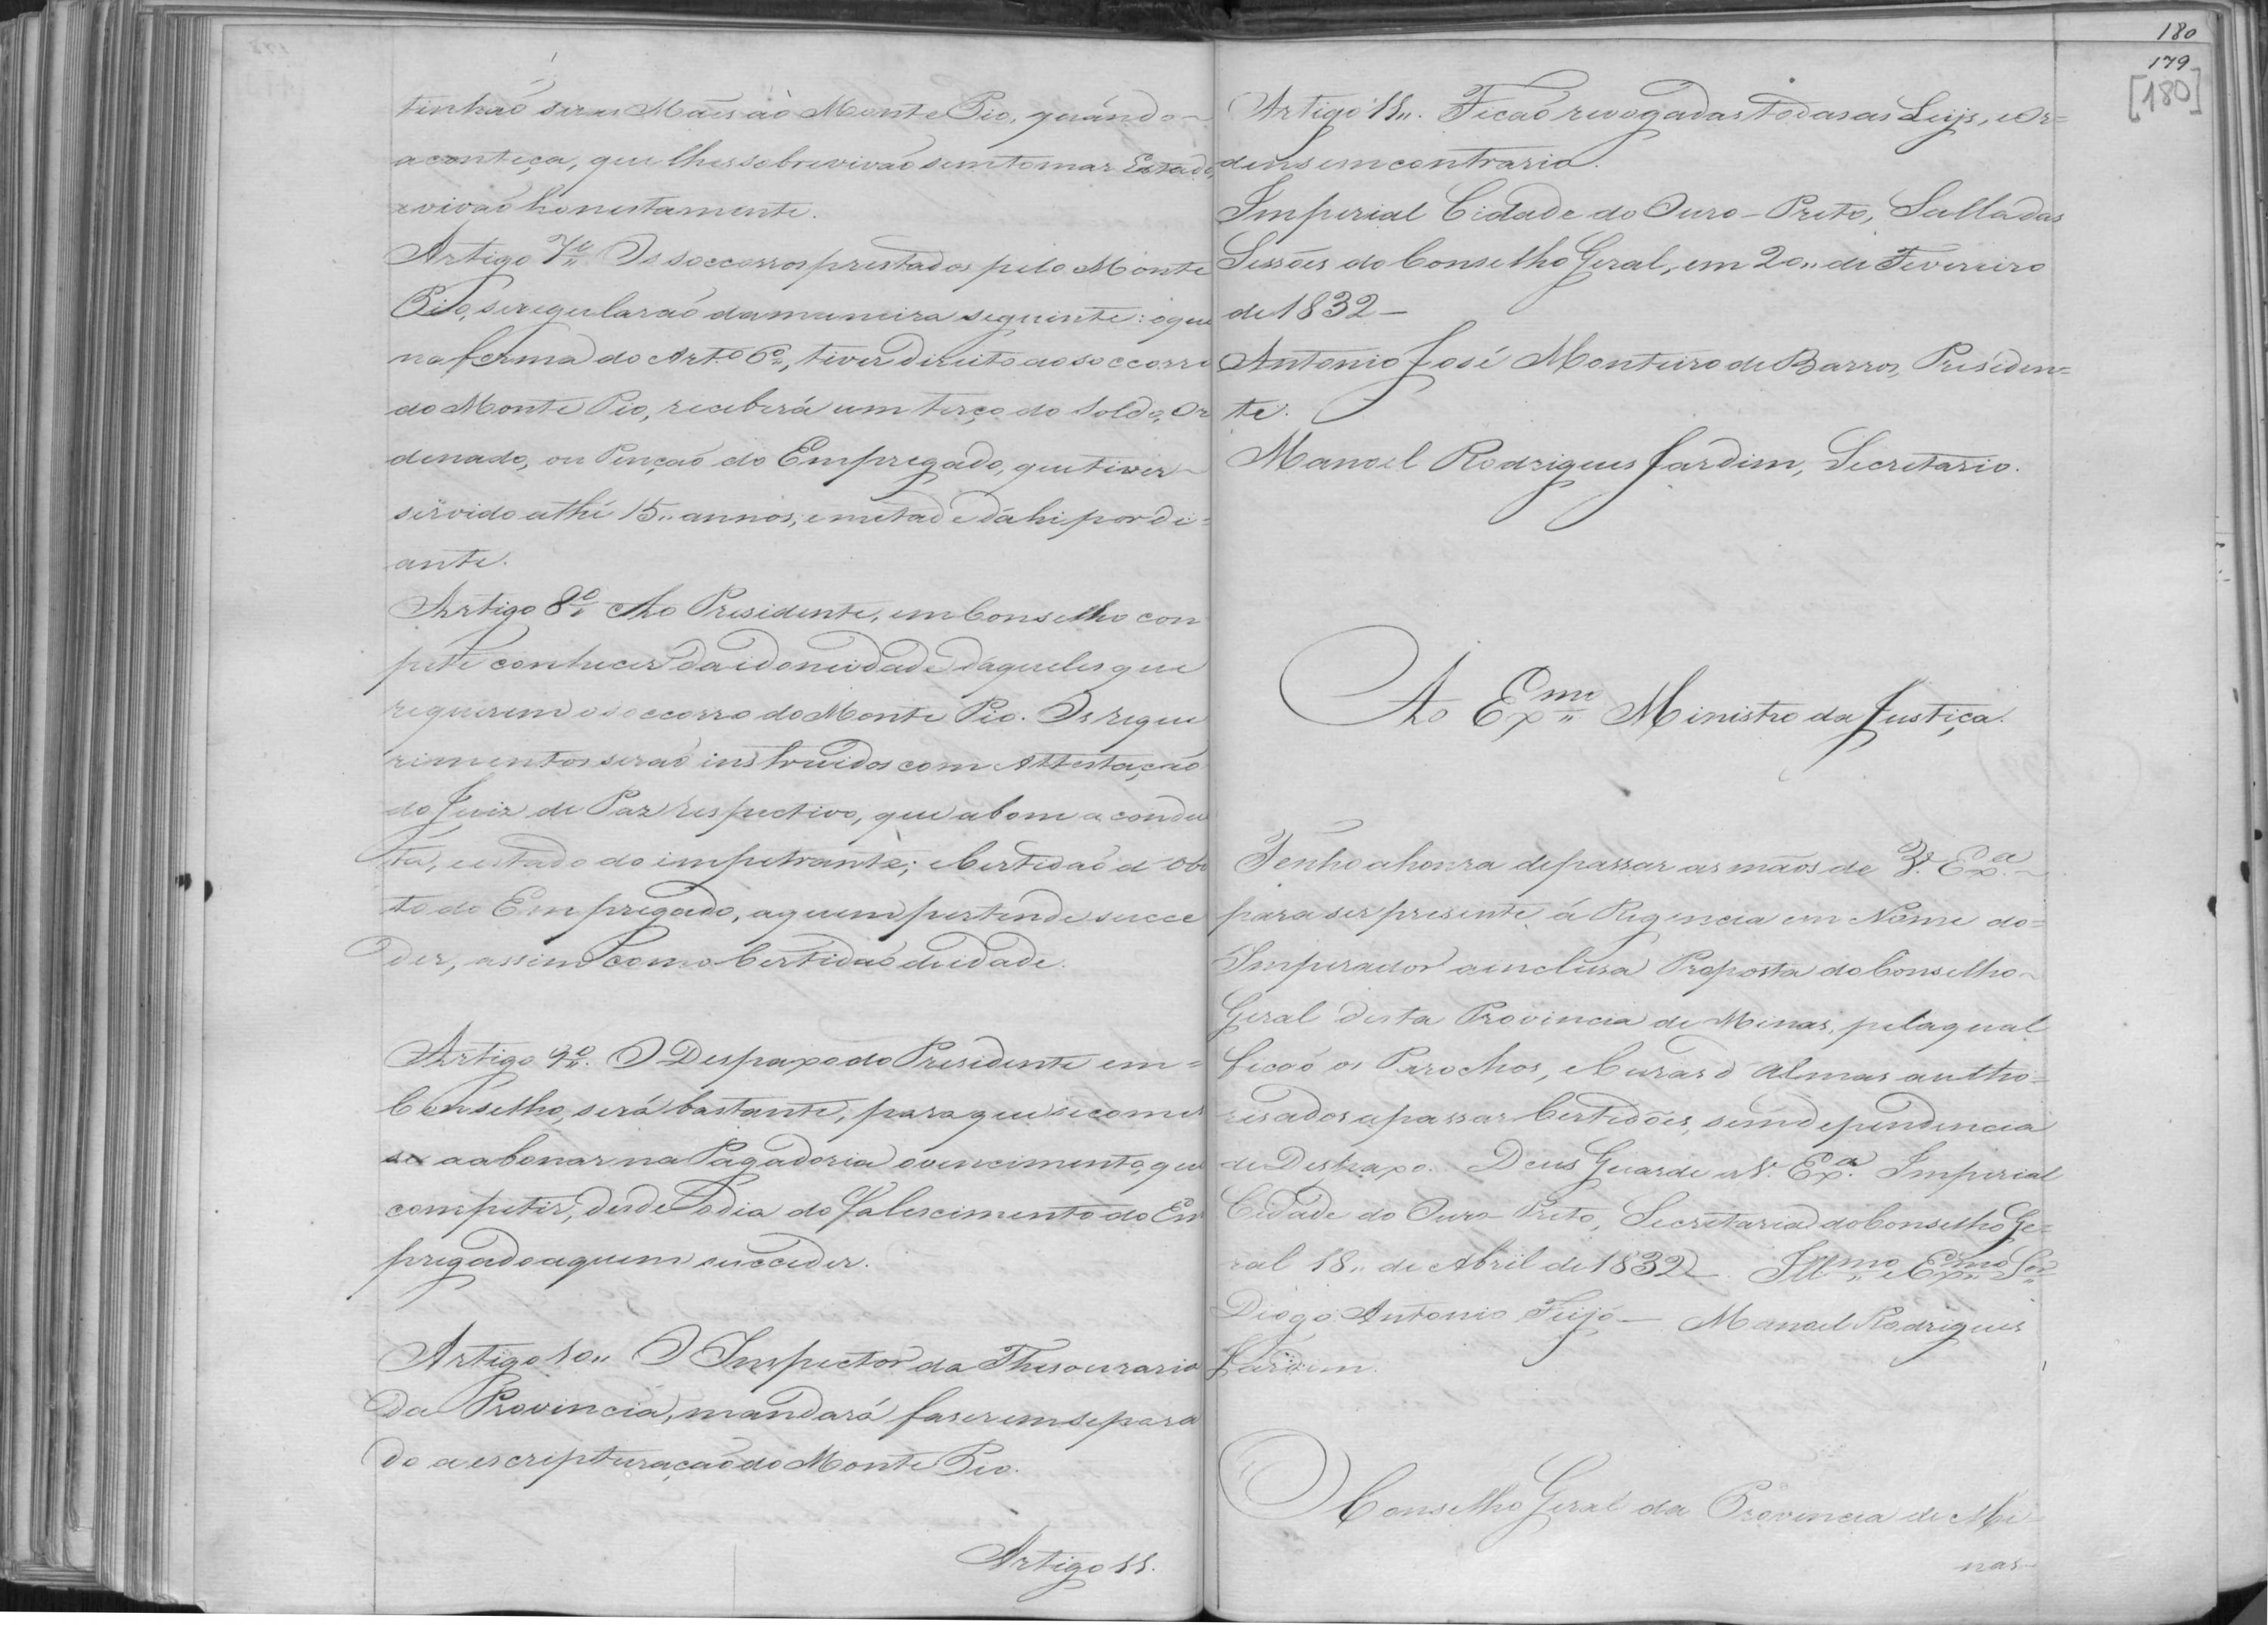 tinhaõ suas Mães aò Monte Pio, quándo
aconteça, que lhes sobrevivaõ sem tomar Estado,
e vivaõ honestamente.
Artigo 7º Os soccorros prestados pelo Monte
Pio, se regularaõ da maneira seguinte: o que
na forma do Artº 6º, tiver direito ao soccorro
do Monte Pio, receberá um terço do Soldo, Or
denado, ou Pençaõ do Empregado, que tiver
servido athé 15 annos, e metade dahi por di=
ante.
Artigo 8º Ao Presidente, em Conselho com
pete conhecer da idoneidade daqueles que
requerem o soccorro do Monte Pio. Os reque
rimentos seraõ instruidos com Attestaçaõ
do Juiz de Paz respectivo, que abone a condu
ta, e estado do impetrante; e Certidaõ d'Obi
to do Empregado, a quem pertende succe
der, assim como Certidaõ de idade.
Artigo 9º. O Despaxo do Presidente em=
Conselho, será bastante, para que se comes
se a abonar na Pagadoria o vencimento, que
competir, desde o dia do falescimento do Em
pregado a quem succeder.
Artigo 10 O Inspector da Thesouraria
da Provincia, mandará faser em separa
do a escripturaçaõ do Monte Pio.
Artigo 11.
180
179
[180]
Artigo 11. Ficaõ revogadas todas as Leys, e Or=
dens em contrario.
Imperial Cidade do Ouro-Preto, Salla das
Sessões do Conselho Geral, em 20 de Fevereiro
de 1832-
Antonio José Monteiro de Barros, Presiden=
te.
Manoel Rodrigues Jardim, Secretario.
Ao Exmo Ministro da Justiça.
Tenho a honra de passar as mãos de V. Exa.
para ser presente á Regencia em Nome do=
Imperador a inclusa Proposta do Conselho
Geral desta Provincia de Minas, pela qual
ficaõ os Parochos, e Curas d'Almas autho=
risados a passar Certidões, sem dependencia
de Despaxo. Deus Guarde a V. Exa. Imperial
Cidade do Ouro-Preto, Secretaria do Conselho Ge=
ral 18 de Abril de 1832 - Illmo e Exmo Snr
Diogo Antonio Feijó - Manoel Rodrigues
Jardim.
O Conselho Geral da Provincia de Mi
nas